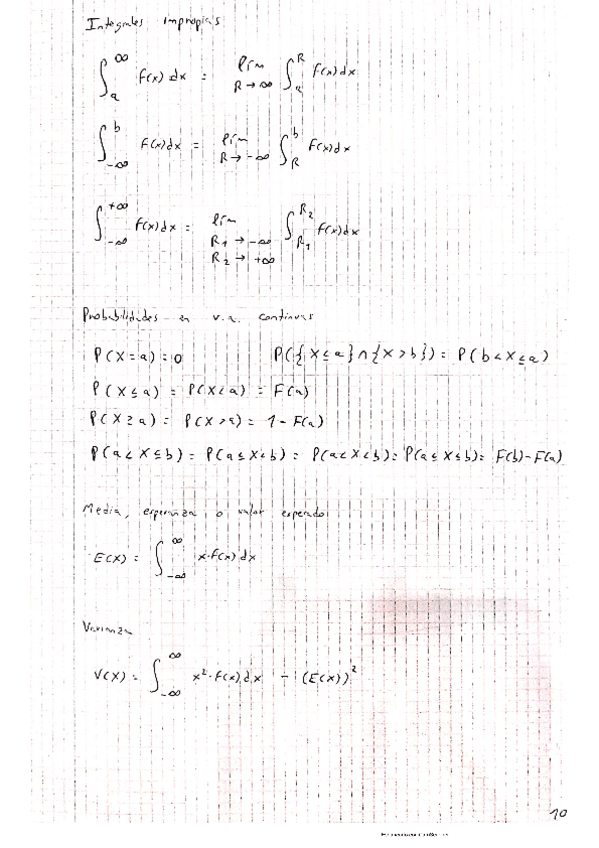 Integrales impropias
∫_a^∞ F(x) dx = lím_{R→∞} ∫_a^R F(x) dx
∫_{-∞}^b F(x) dx = lím_{R→-∞} ∫_R^b F(x) dx
∫_{-∞}^{+∞} F(x) dx = lím_{R₁→-∞, R₂→+∞} ∫_{R₁}^{R₂} F(x) dx
Probabilidades en v.a. continuas
P(X=a)=0 P({X≤a}∩{X>b}) = P(b<X≤a)
P(X≤a) = P(X<a) = F(a)
P(X≥a) = P(X>a) = 1-F(a)
P(a<X≤b) = P(a≤X<b) = P(a<X<b) = P(a≤X≤b) = F(b)-F(a)
Media, esperanza o valor esperado:
E(X) = ∫_{-∞}^∞ x·F(x) dx
Varianza
V(X) = ∫_{-∞}^∞ x²·F(x) dx - (E(X))²
10